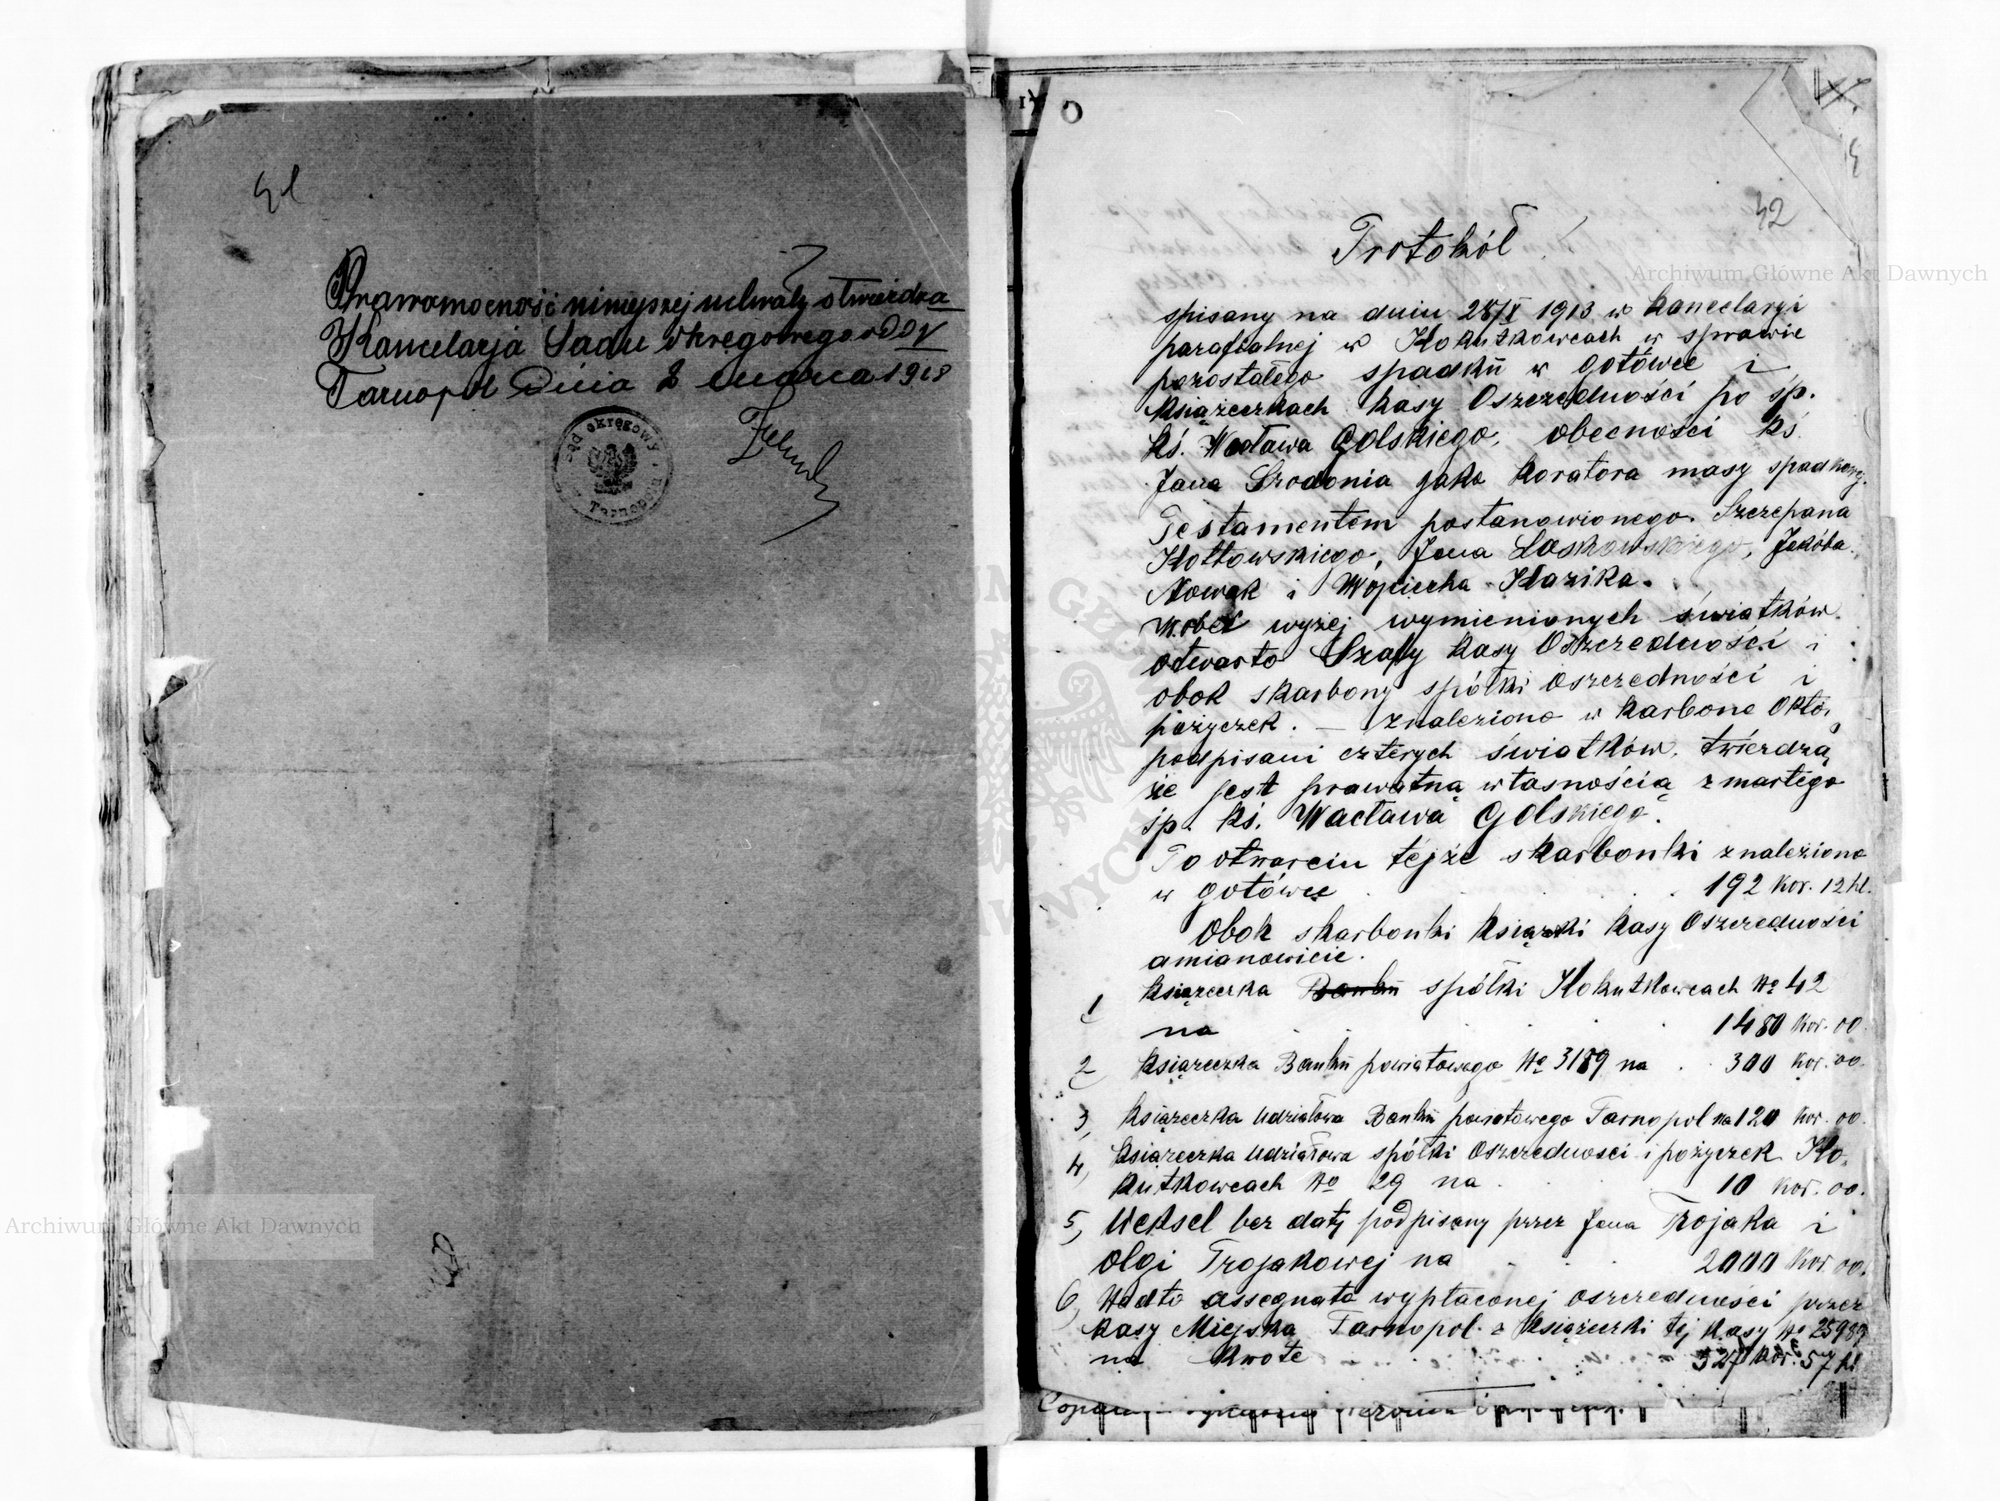 Prawomocność niniejszej uchwały stwierdza
Kancelarja Sądu okręgowego odd V
Tarnopol dnia 2 marca 1918
Sąd okręgowy
w Tarnopolu
O
42
Protokół
spisany na dniu 28/X 1913 w kancelaryi
parafialnej w Kokutkowcach w sprawie
pozostałego spadkŭ w gotówce i
książeczkach kasy Oszczędności po śp.
kś. Wacława Golskiego, obecności kś.
Jana Srodonia jako koratora masy spadkowej.
Testamentem postanowionego. Szczepana
Kotłowskiego, Jana Laskowskiego, Jakóba
Nowak i Wojciecha Kazika.
Wobec wyżej wymienionych świątków.
otwarto Szafy kasy Oszczędności i
obok skarbony spółki oszczedności i
pożyczek. — znaleziono w karbone
podpisani czterych świątków. twierdzą
że jest prawatną własnością zmartego
śp. kś. Wacława Golskiego.
Po otwarciu tejże skarbonki znaleziono
w gotówce . . . 192 kor. 12 hl.
Obok skarbonki książki kasy Oszczedności
amianowicie.
1 książeczka Bankŭ spółki Kokutkowcach No 42
na . . . 1480 kor. 00.
2 książeczka Bankŭ powiatowego No 3189 na . 300 kor. 00.
3, książeczka udziałowa Bankŭ powiatowego Tarnopol na 120 kor. 00.
4, książeczka udziałowa spółki oszczedności i pożyczek Ko,
kutkowcach No 29 na . . 10 kor. 00.
5, Weksel bez daty podpisany przez Jana Trojaka i
Olgi Trojakowej na . . . 2000 kor. 00.
6, Nadto assegnata wypłaconej oszczedności przez
kasy Miejską Tarnopol z książeczki tej kasy No 25989
na kwote . . . 527 kor. 57 hl
Archiwum Główne Akt Dawnych
Archiwum Główne Akt Dawnych